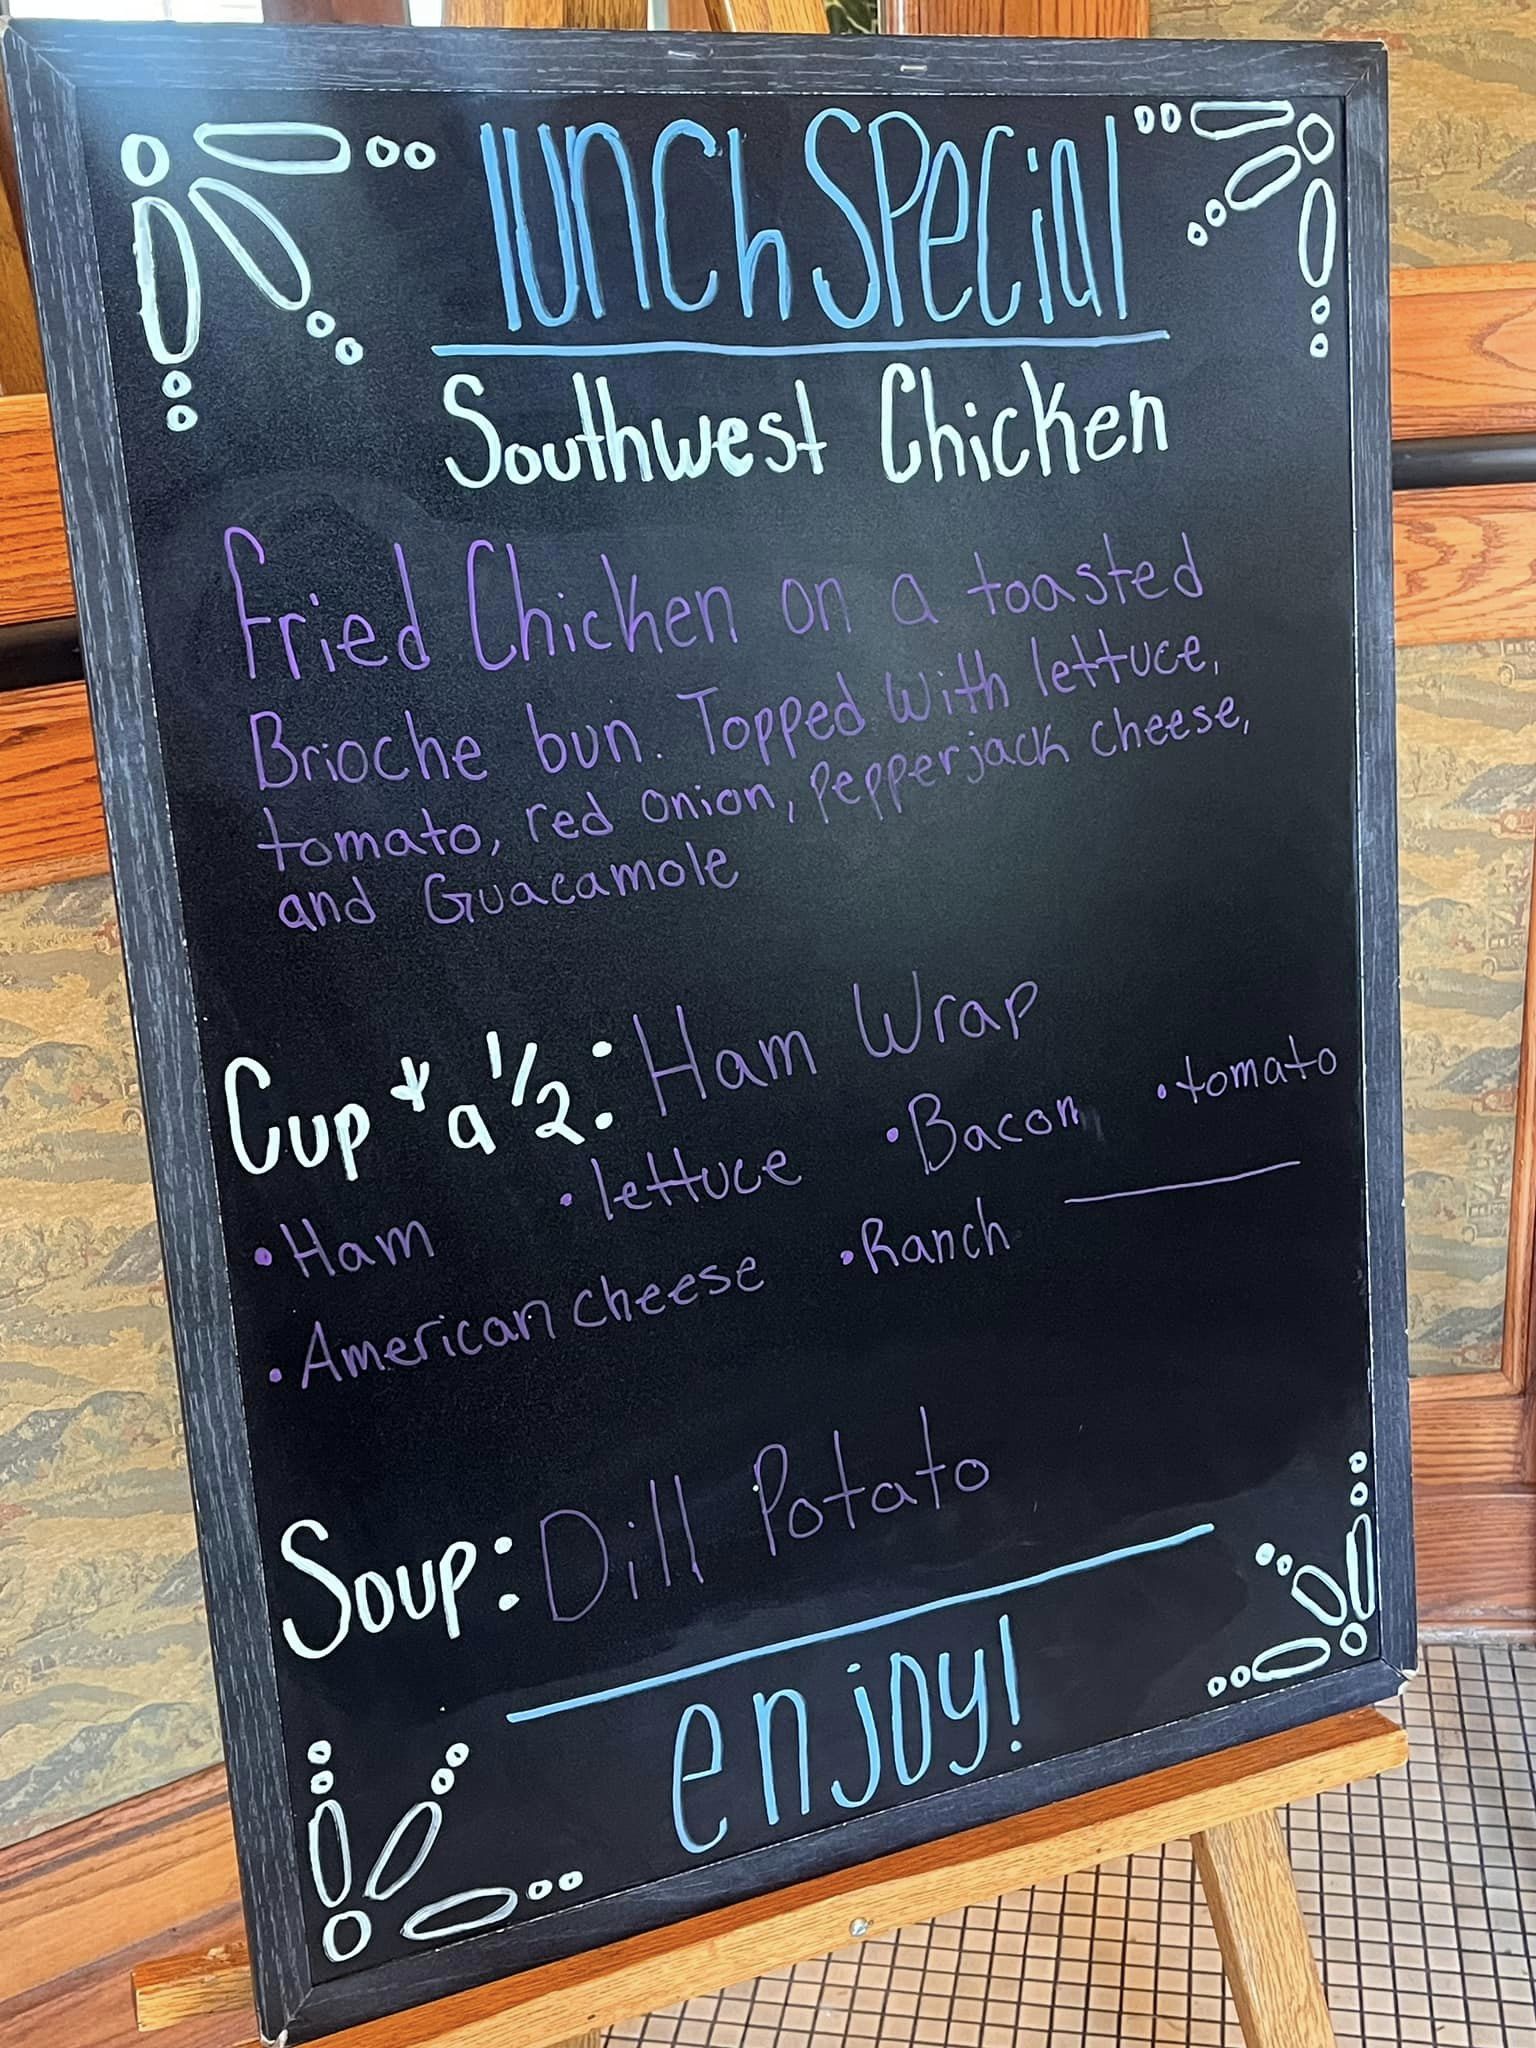 lunch Special
Southwest Chicken
Fried Chicken on a toasted
Brioche bun. Topped with lettuce,
tomato, red onion, Pepperjack cheese,
and Guacamole
Cup + a 1/2: Ham Wrap
• Ham • lettuce • Bacon • tomato
• American cheese • Ranch
Soup: Dill Potato
enjoy!